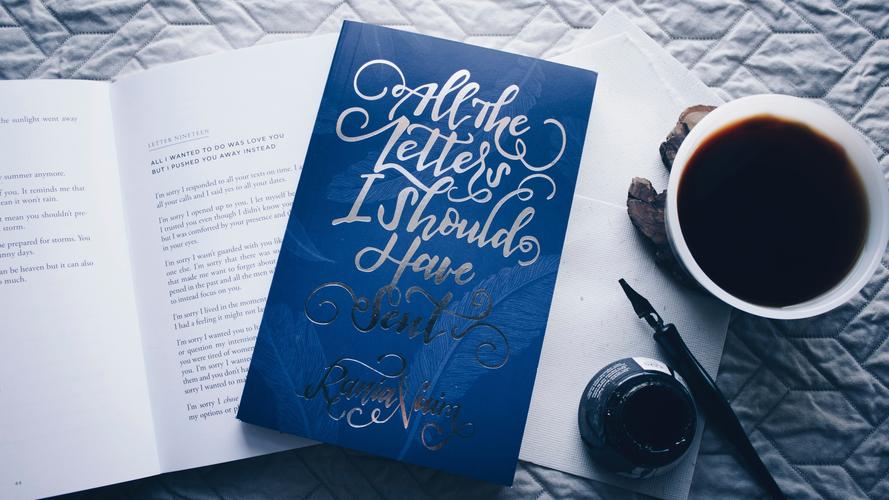 the sunlight went away
summer anymore.
f you. It reminds me that
ean it won't rain.
t mean you shouldn't pre-
storm.
e prepared for storms. You
nny days.
an be heaven but it can also
o much.
44
LETTER NINETEEN
ALL I WANTED TO DO WAS LOVE YOU
BUT I PUSHED YOU AWAY INSTEAD
I'm sorry I responded to all your texts on time. I
all your calls and I said yes to all your dates.
I'm sorry I opened up to you. I let myself be
I trusted you even though I didn't know you
but I was comforted by your presence and
in your eyes.
I'm sorry I wasn't guarded with you lik
one else. I'm sorry that there was so
that made me want to forget about
pened in the past and all the men w
to instead focus on you.
I'm sorry I lived in the moment
I had a feeling it might not la
I'm sorry I wanted you to h
or question my intention
you were tired of wome
you. I'm sorry I wante
them and you don't ha
sorry I wanted to ma
I'm sorry I chose
my options or p
All the
Letters
I Should
Have
Sent
Rania Naim